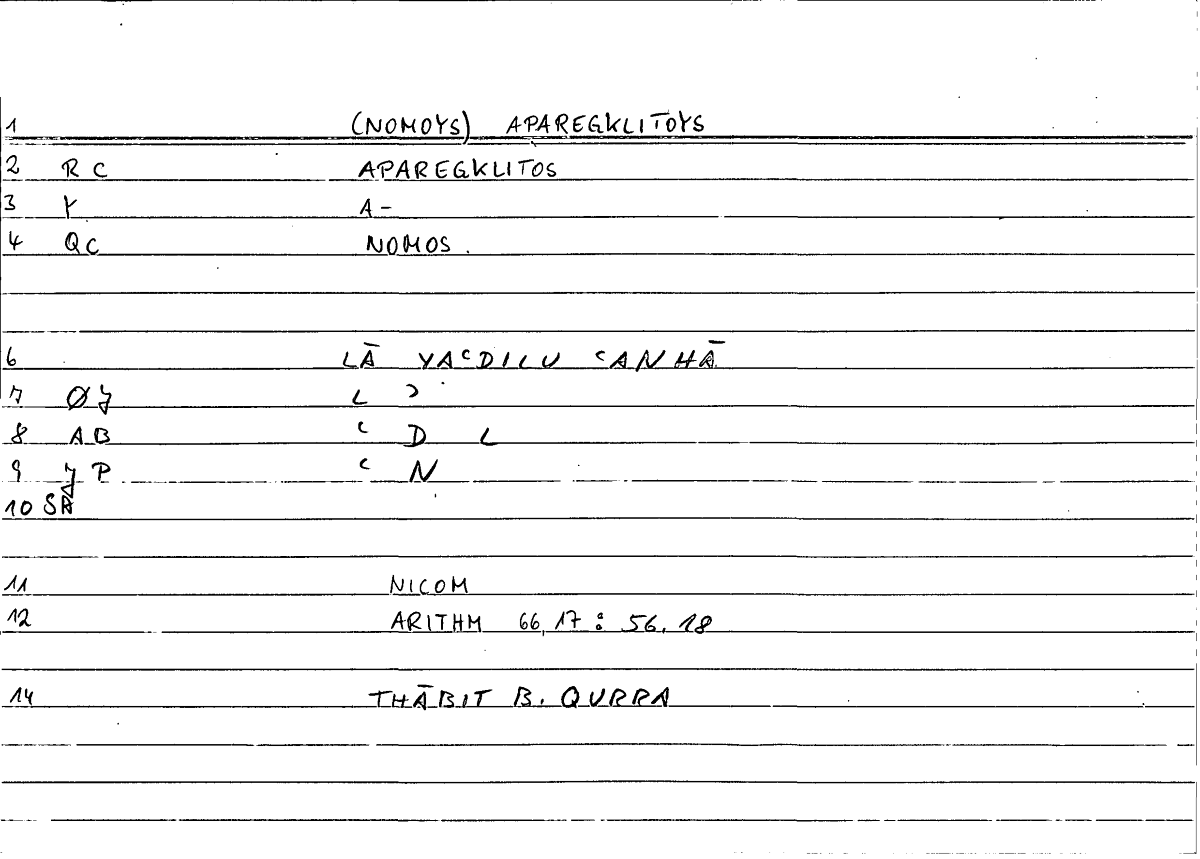 1 (NOMOYS) APAREGKLITOYS
2 RC APAREGKLITOS
3 Y A-
4 QC NOMOS.
6 LĀ YAʿDILU ʿANHĀ
7 ØJ L ʾ
8 AB ʿ D L
9 JP ʿ N
10 SA
11 NICOM
12 ARITHM 66,17 : 56.18
14 THĀBIT B. QURRA